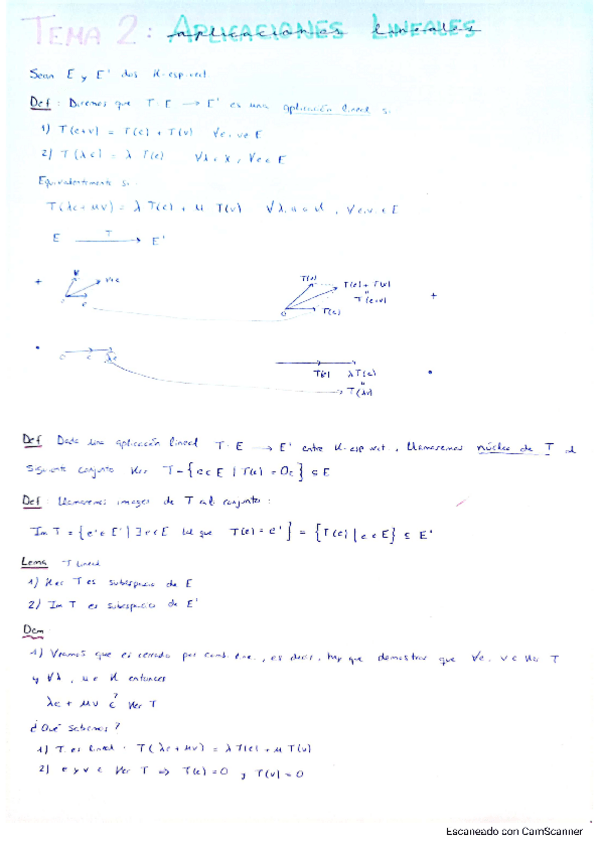 TEMA 2: APLICACIONES LINEALES
Sean E y E' dos K-esp. vect.
Def: Diremos que T: E → E' es una aplicación lineal si
1) T(e+v) = T(e) + T(v) ∀e, v ∈ E
2) T(λe) = λ T(e) ∀λ ∈ K, ∀e ∈ E
Equivalentemente si:
T(λe+μv) = λ T(e) + μ T(v) ∀λ, μ ∈ K, ∀e, v ∈ E
E T → E'
+ v v+e e T(v) T(e)+T(v) +
= T(e+v)
0 T(e)
• 0 e λe T(e) λT(e) •
= T(λe)
Def Dada una aplicación lineal T: E → E' entre K-esp. vect, llamaremos núcleo de T al
siguiente conjunto Ker T = {e ∈ E | T(e) = 0} ⊆ E
Def: Llamaremos imagen de T al conjunto:
Im T = {e' ∈ E' | ∃ e ∈ E tal que T(e) = e'} = {T(e) | e ∈ E} ⊆ E'
Lema T lineal
1) Ker T es subespacio de E
2) Im T es subespacio de E'
Dem
1) Veamos que es cerrado por comb. line., es decir, hay que demostrar que ∀e, v ∈ Ker T
y ∀λ, μ ∈ K entonces
λe + μv ∈? Ker T
¿Qué sabemos?
1) T es lineal: T(λe + μv) = λT(e) + μT(v)
2) e y v ∈ Ker T ⇒ T(e) = 0 y T(v) = 0
Escaneado con CamScanner